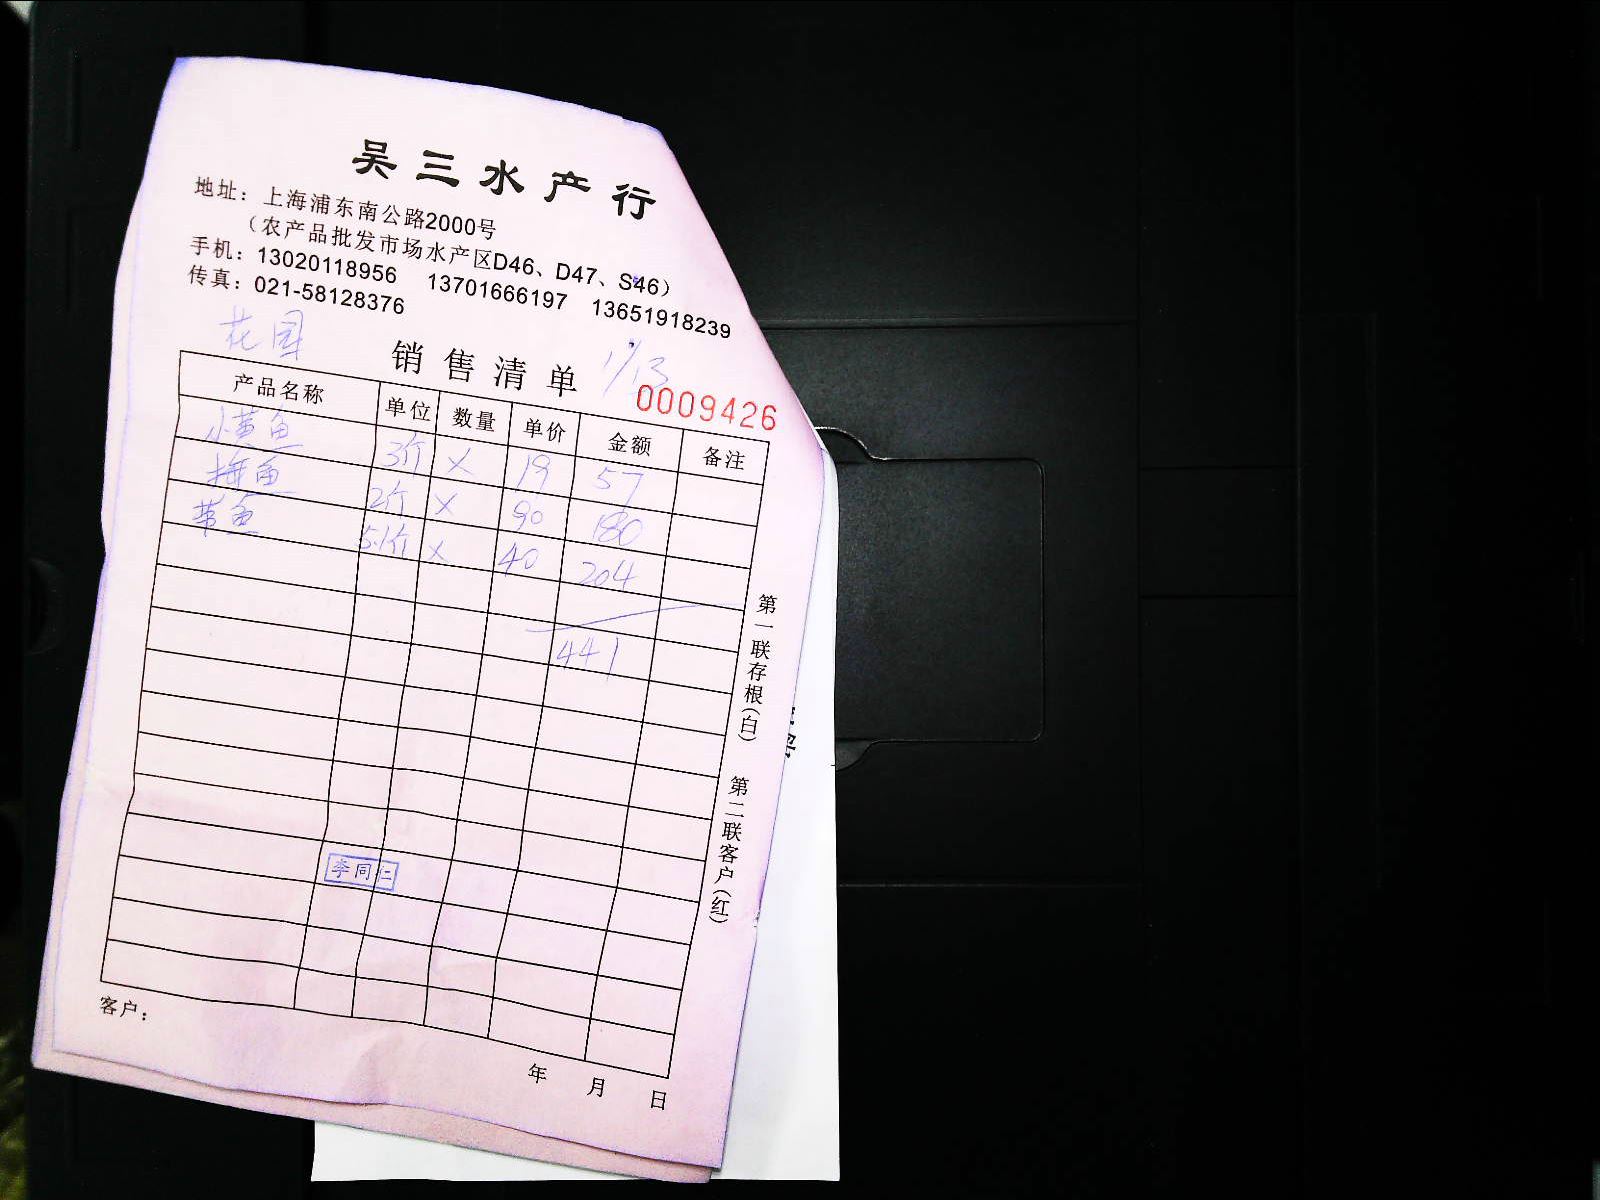 吴三水产行
地址：上海浦东南公路2000号
（农产品批发市场水产区D46、D47、S46）
手机：13020118956 13701666197 13651918239
传真：021-58128376
花园
销售清单 1/13
0009426
产品名称 单位 数量 单价 金额 备注
小黄鱼 3斤 × 19 57
鱼 2斤 × 90 180
带鱼 5.1斤 × 40 204
441
第一联存根（白）
第二联客户（红）
李同仁
客户：
年 月 日